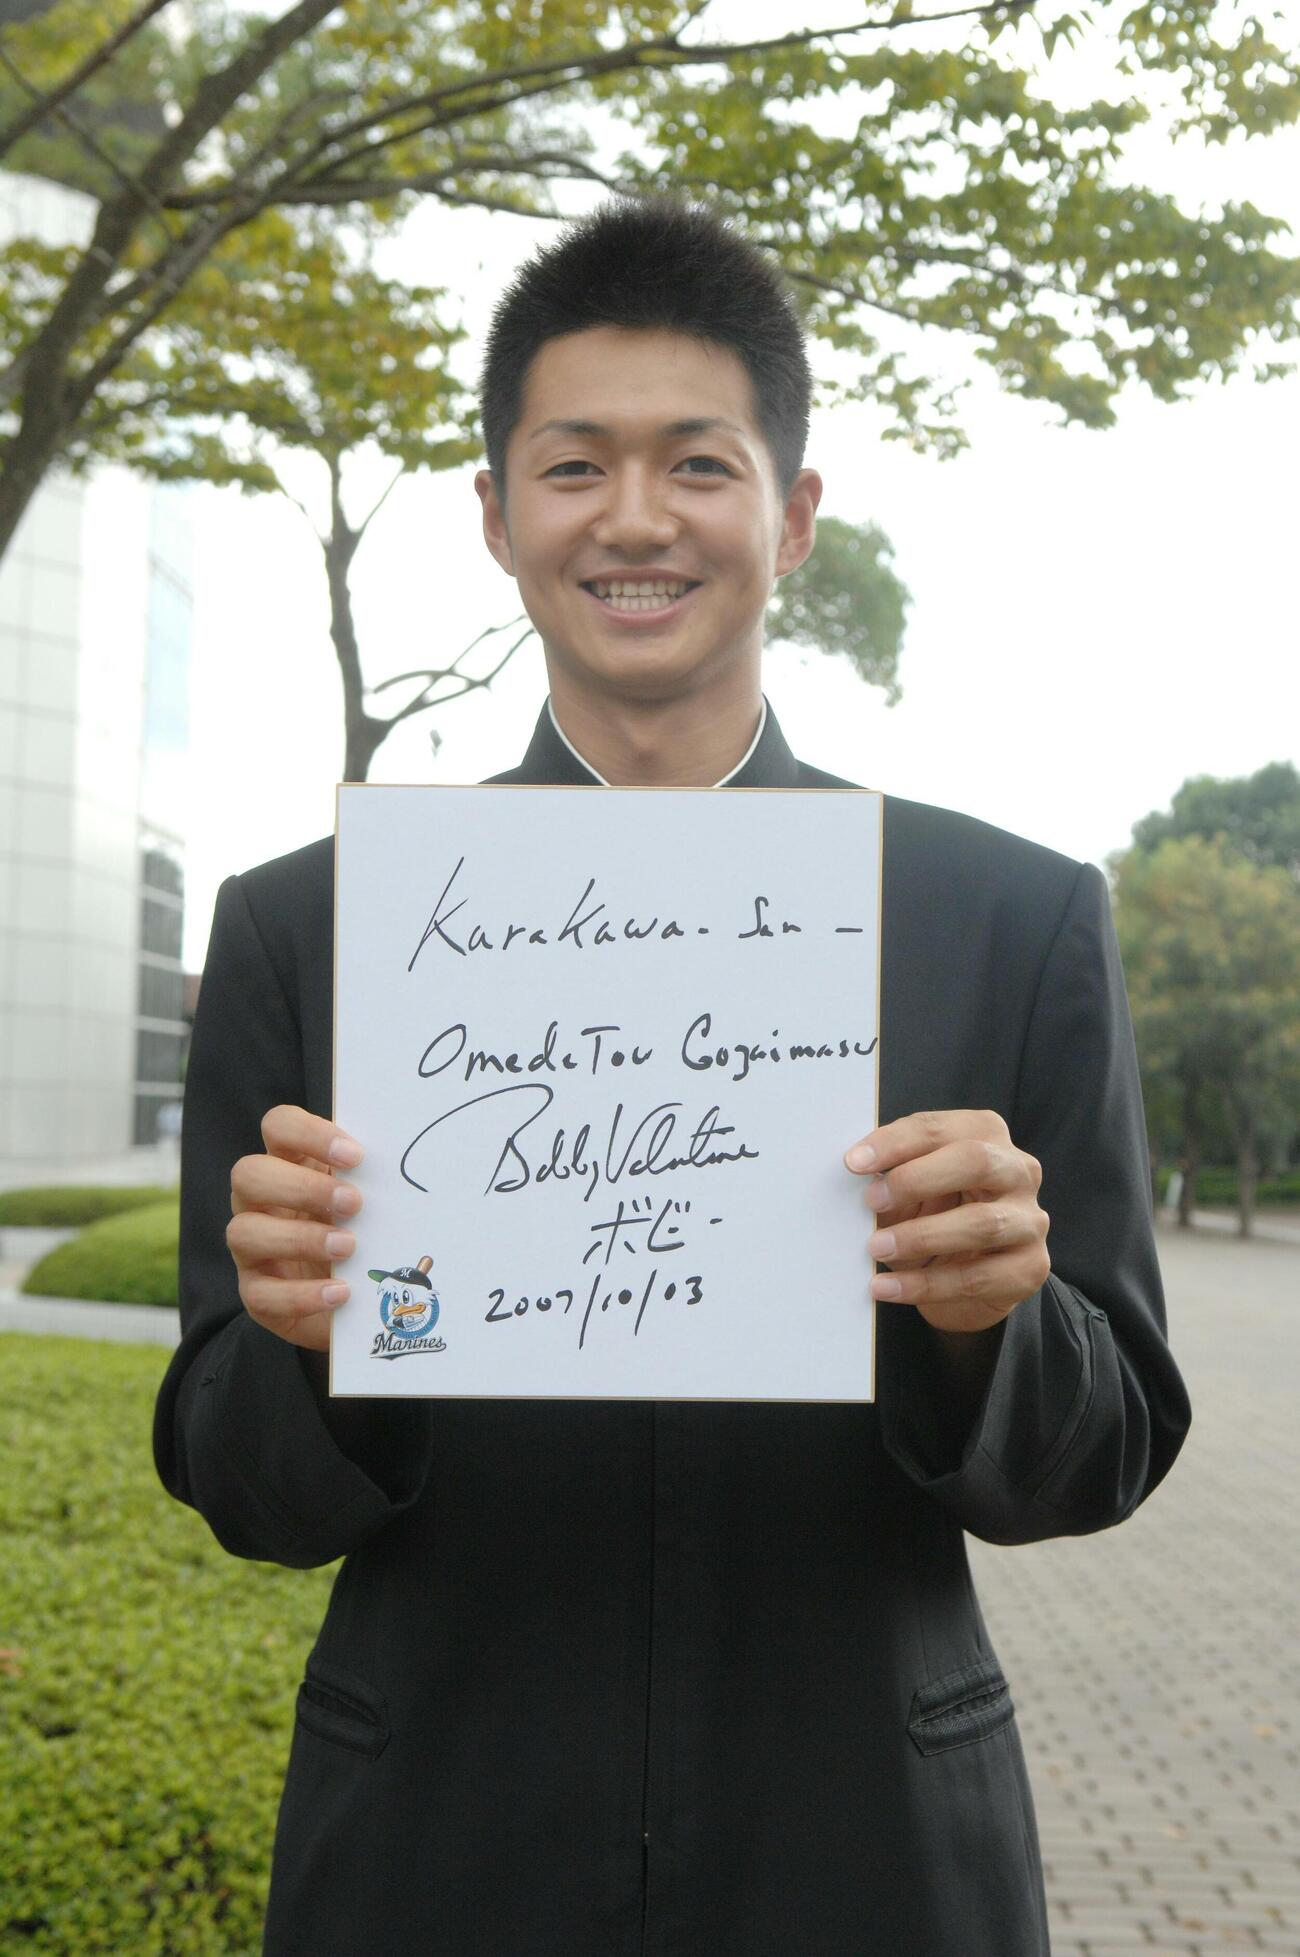 Karakawa-San-
Omedetou Gozaimasu
Bobby Valentine
ボビー
2007/10/03
M
Marines